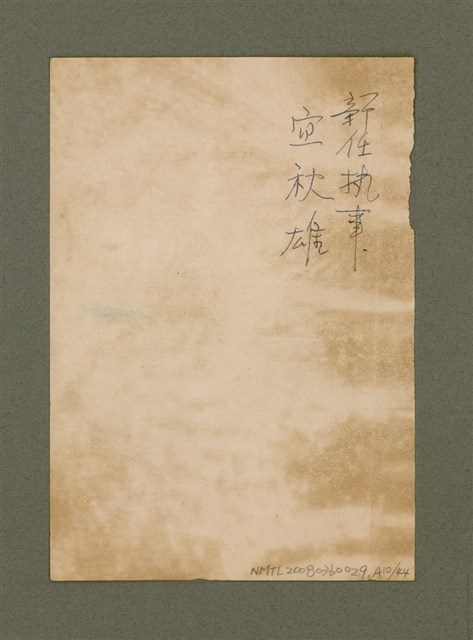 新任执事
宣秋雄
NMTL20080360029_A10/44